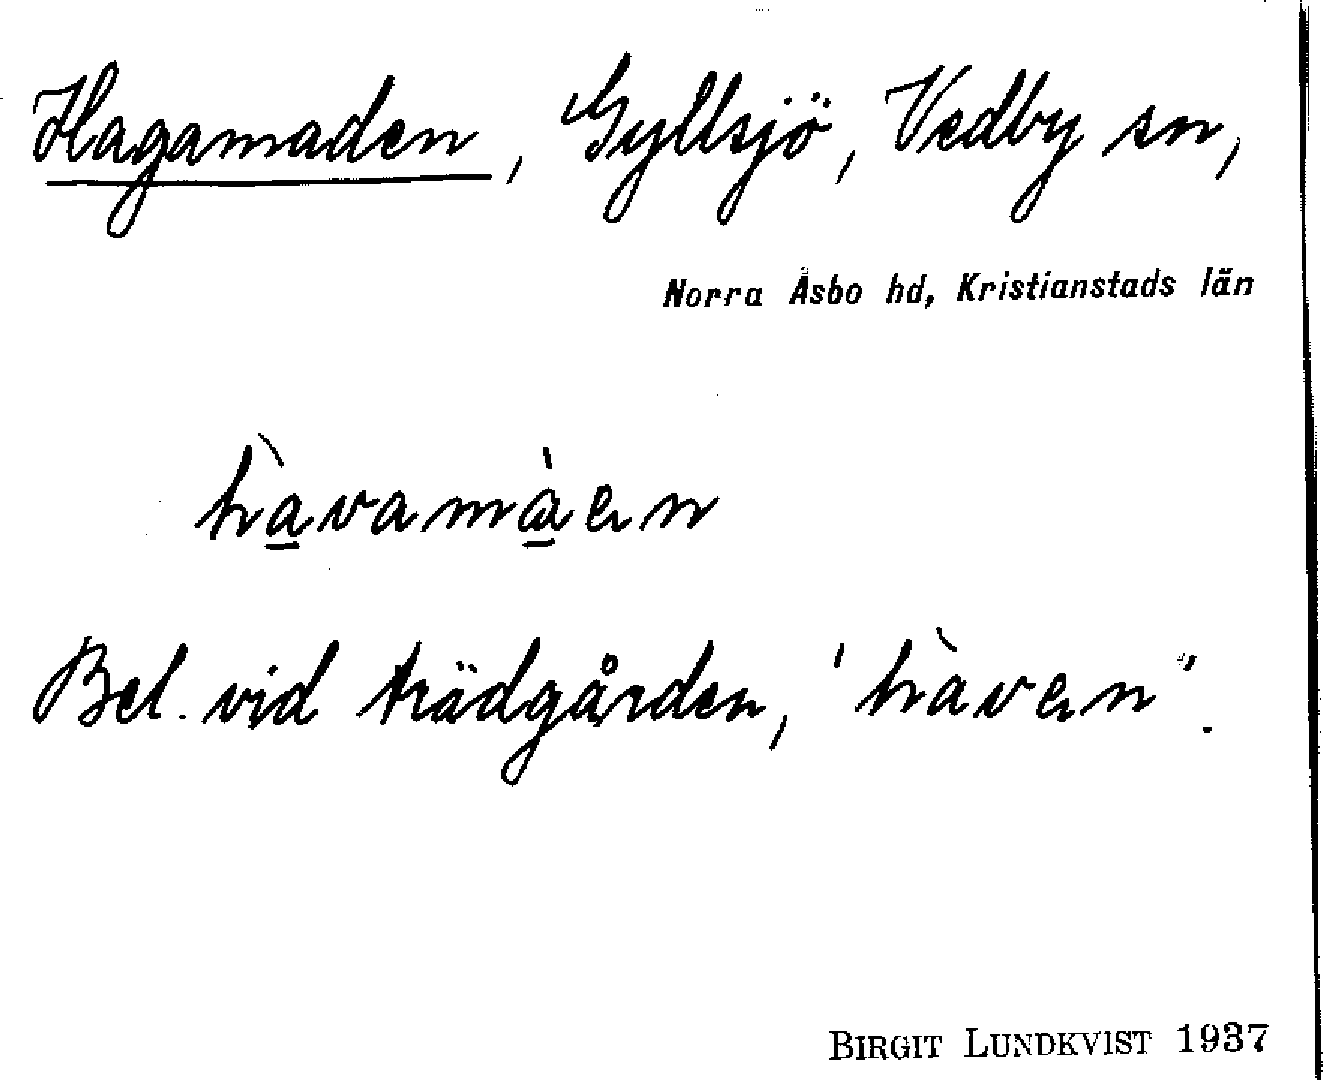 Hagamaden, Gyllsjö, Vedby sn,
Norra Åsbo hd, Kristianstads län
hàvamàen
Bel. vid trädgården, "hàven".
BIRGIT LUNDKVIST 1937